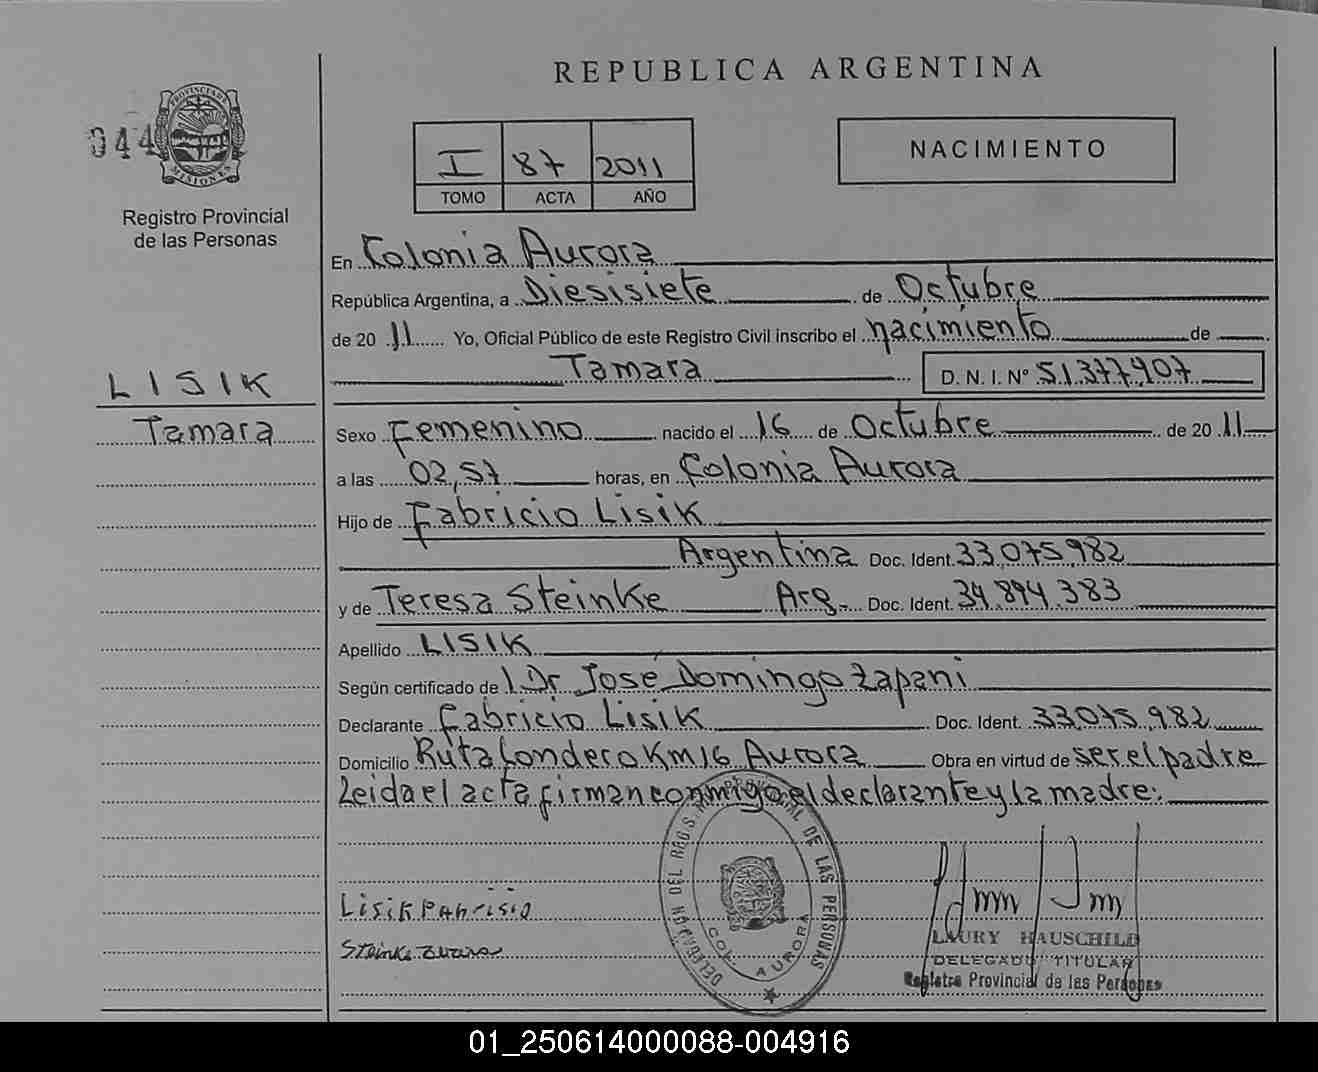 REPUBLICA ARGENTINA
044
PROVINCIA DE
MISIONES
Registro Provincial
de las Personas
I 87 2011
TOMO ACTA AÑO
NACIMIENTO
En Colonia Aurora
República Argentina, a Diesisiete de Octubre
de 2011 Yo, Oficial Público de este Registro Civil inscribo el nacimiento de
Tamara D. N. I. N° 51.377.907
LISIK
Tamara
Sexo Femenino nacido el 16 de Octubre de 2011
a las 02,57 horas, en Colonia Aurora
Hijo de Fabricio Lisik
Argentina Doc. Ident. 33.075.982
y de Teresa Steinke Arg. Doc. Ident. 34.894.383
Apellido LISIK
Según certificado de l Dr José Domingo Zapani
Declarante Fabricio Lisik Doc. Ident. 33.075.982
Domicilio Ruta Londero Km 16 Aurora Obra en virtud de ser el padre
Leida el acta firman conmigo el declarante y la madre:
DELEGACIÓN DEL REGIS. PROVINCIAL DE LAS PERSONAS
COL. AURORA
Lisik Fabrisio
Steinke
LAURY HAUSCHILD
DELEGADO TITULAR
Registro Provincial de las Personas
01_250614000088-004916